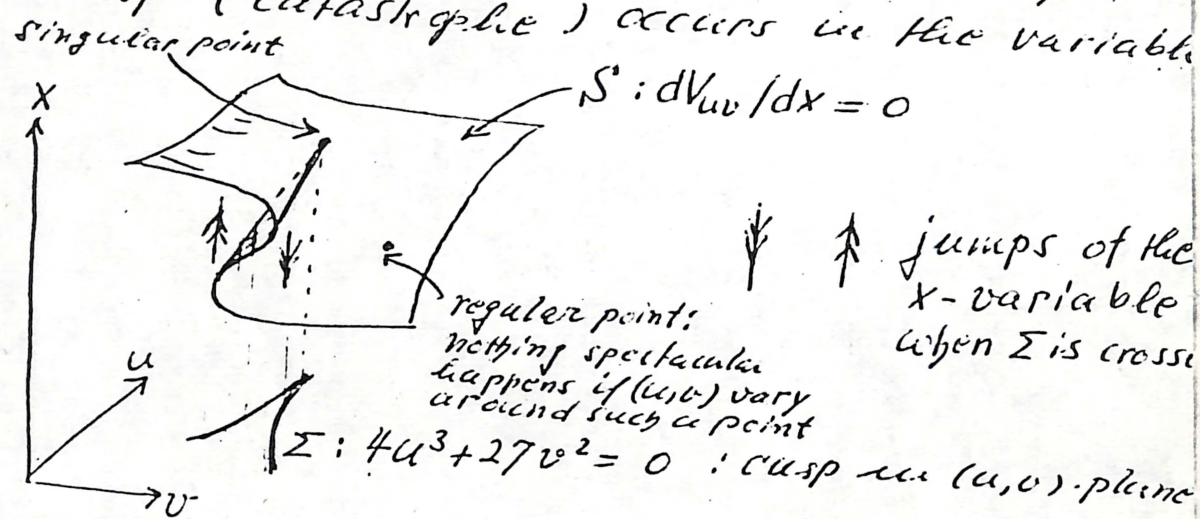 (catastrophe) occurs in the variable
singular point
S : dV_uv/dx = 0
x
jumps of the
x-variable
when Σ is cross
regular point:
nothing spectacular
happens if (u,v) vary
around such a point
u
Σ : 4u³+27v² = 0 : cusp in (u,v)-plane
v